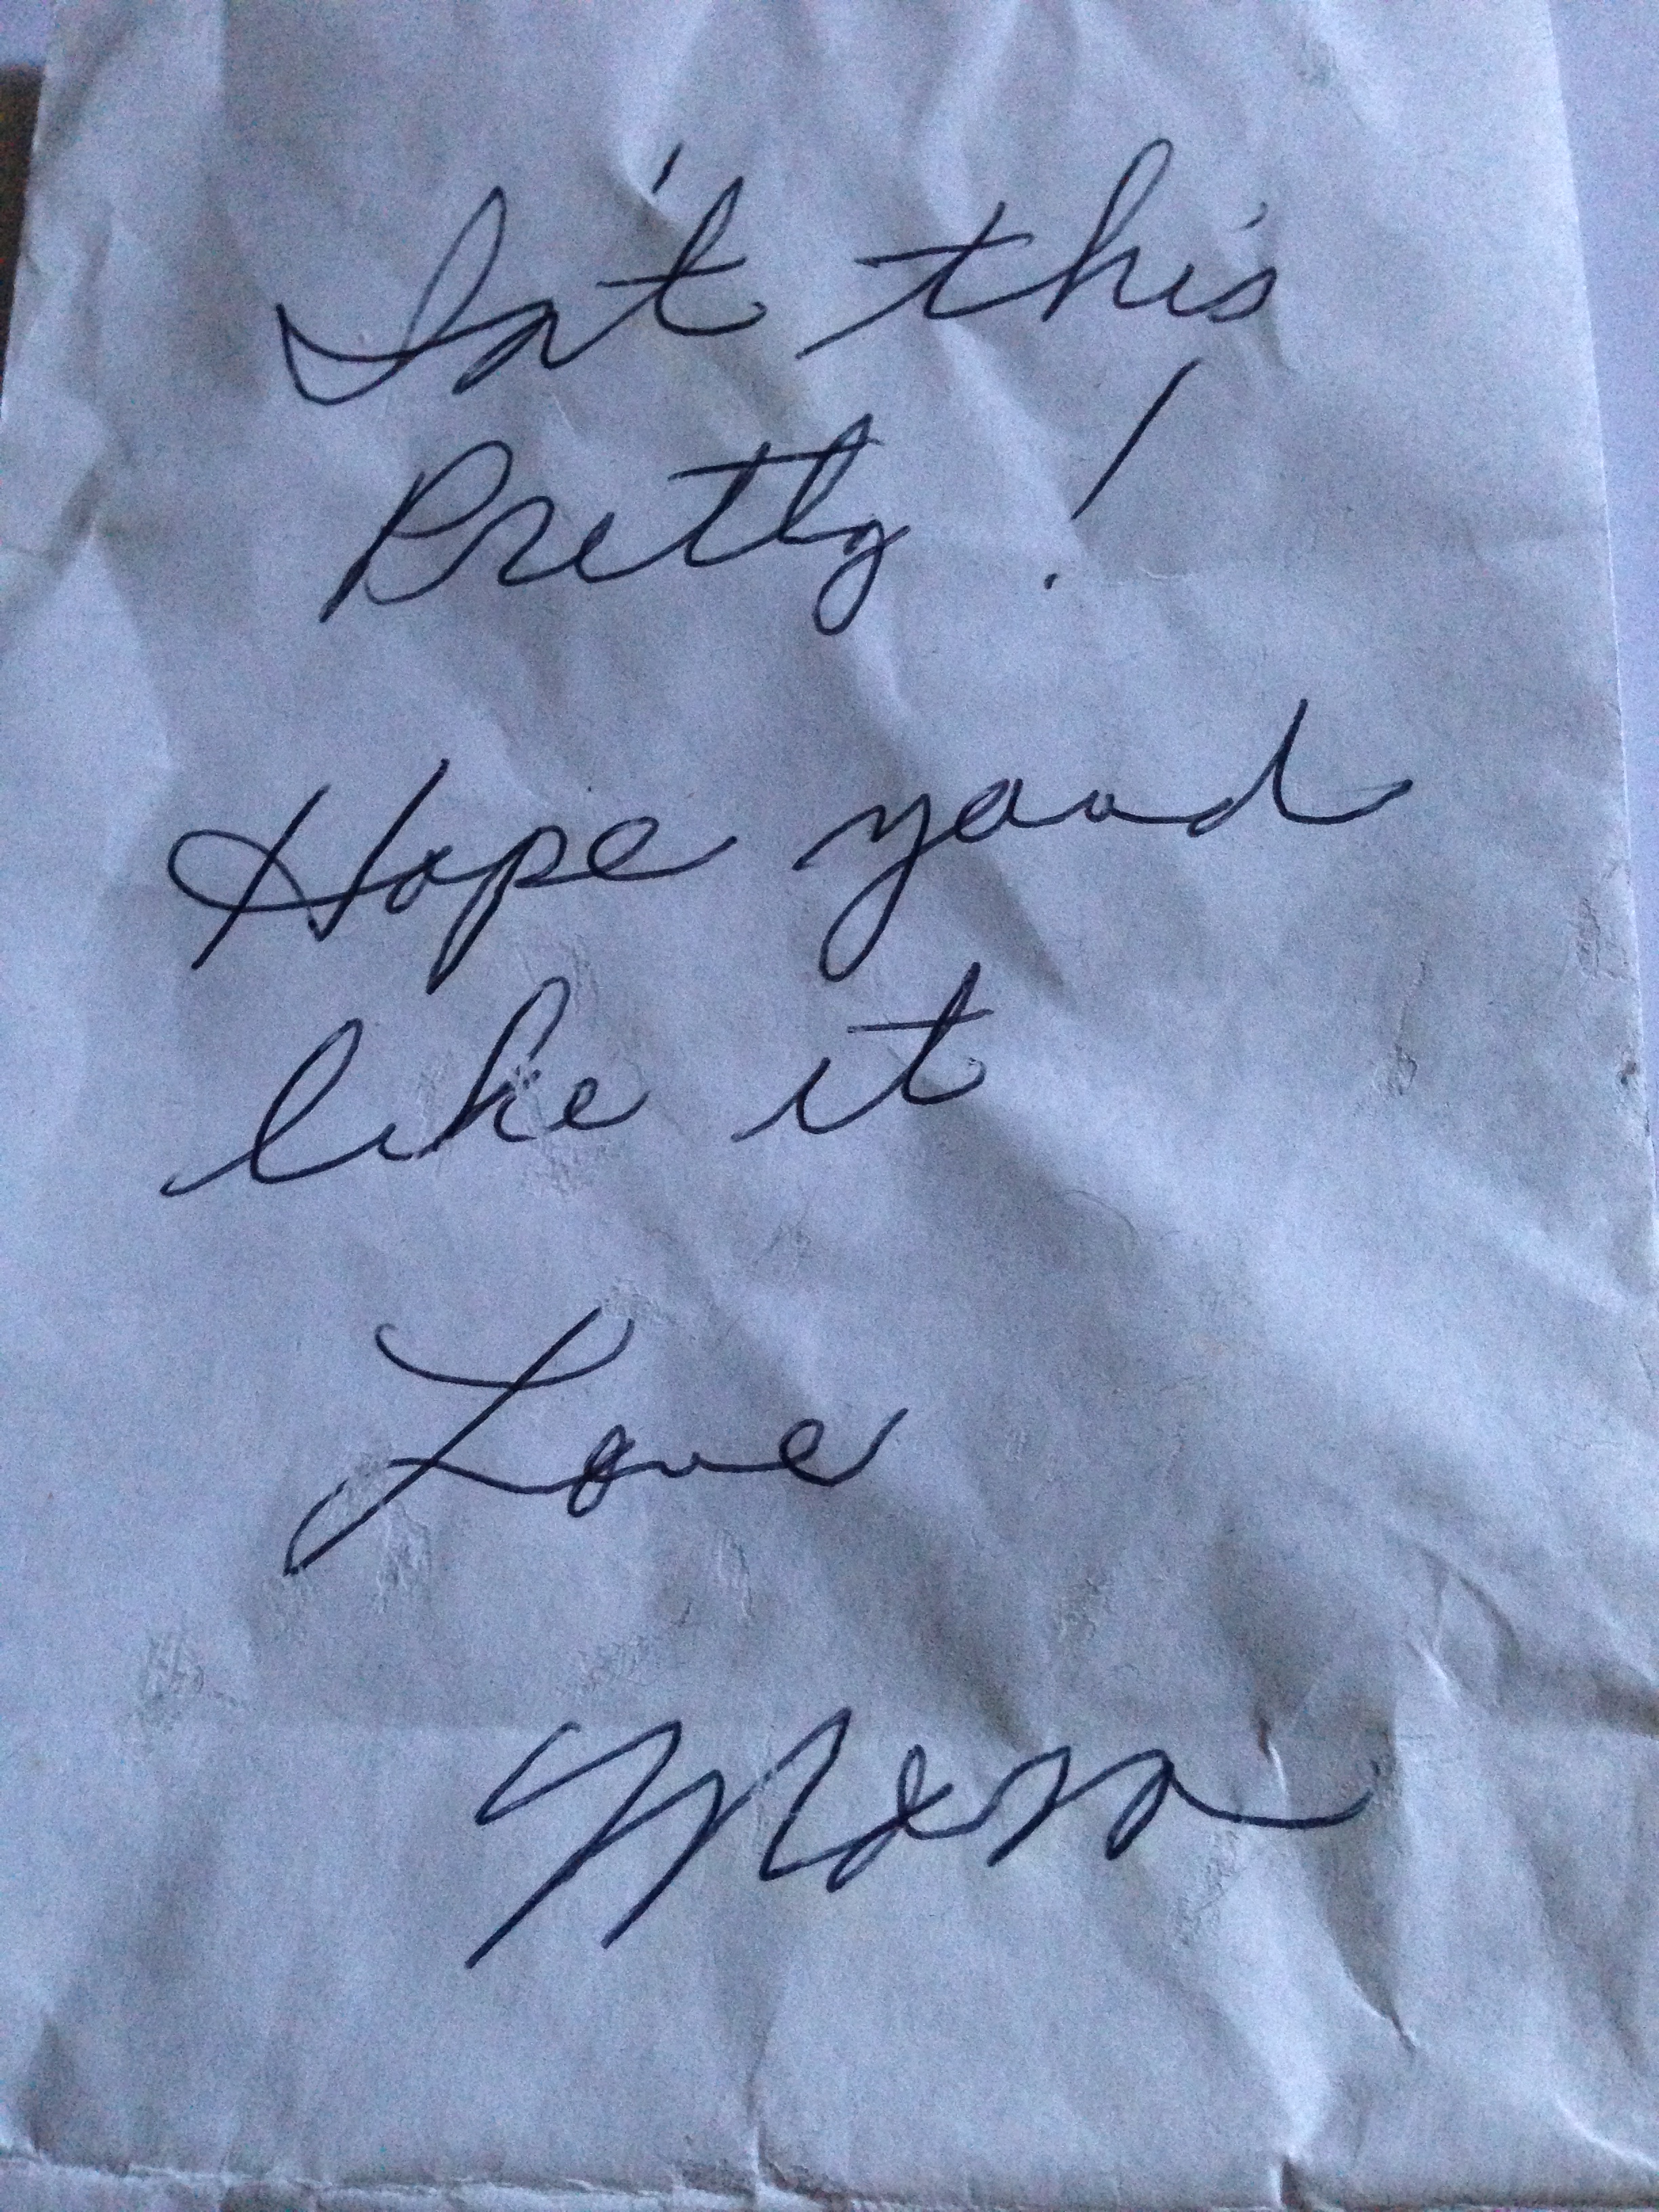 Isn't this
Pretty!
Hope you'd
like it
Love
Mom